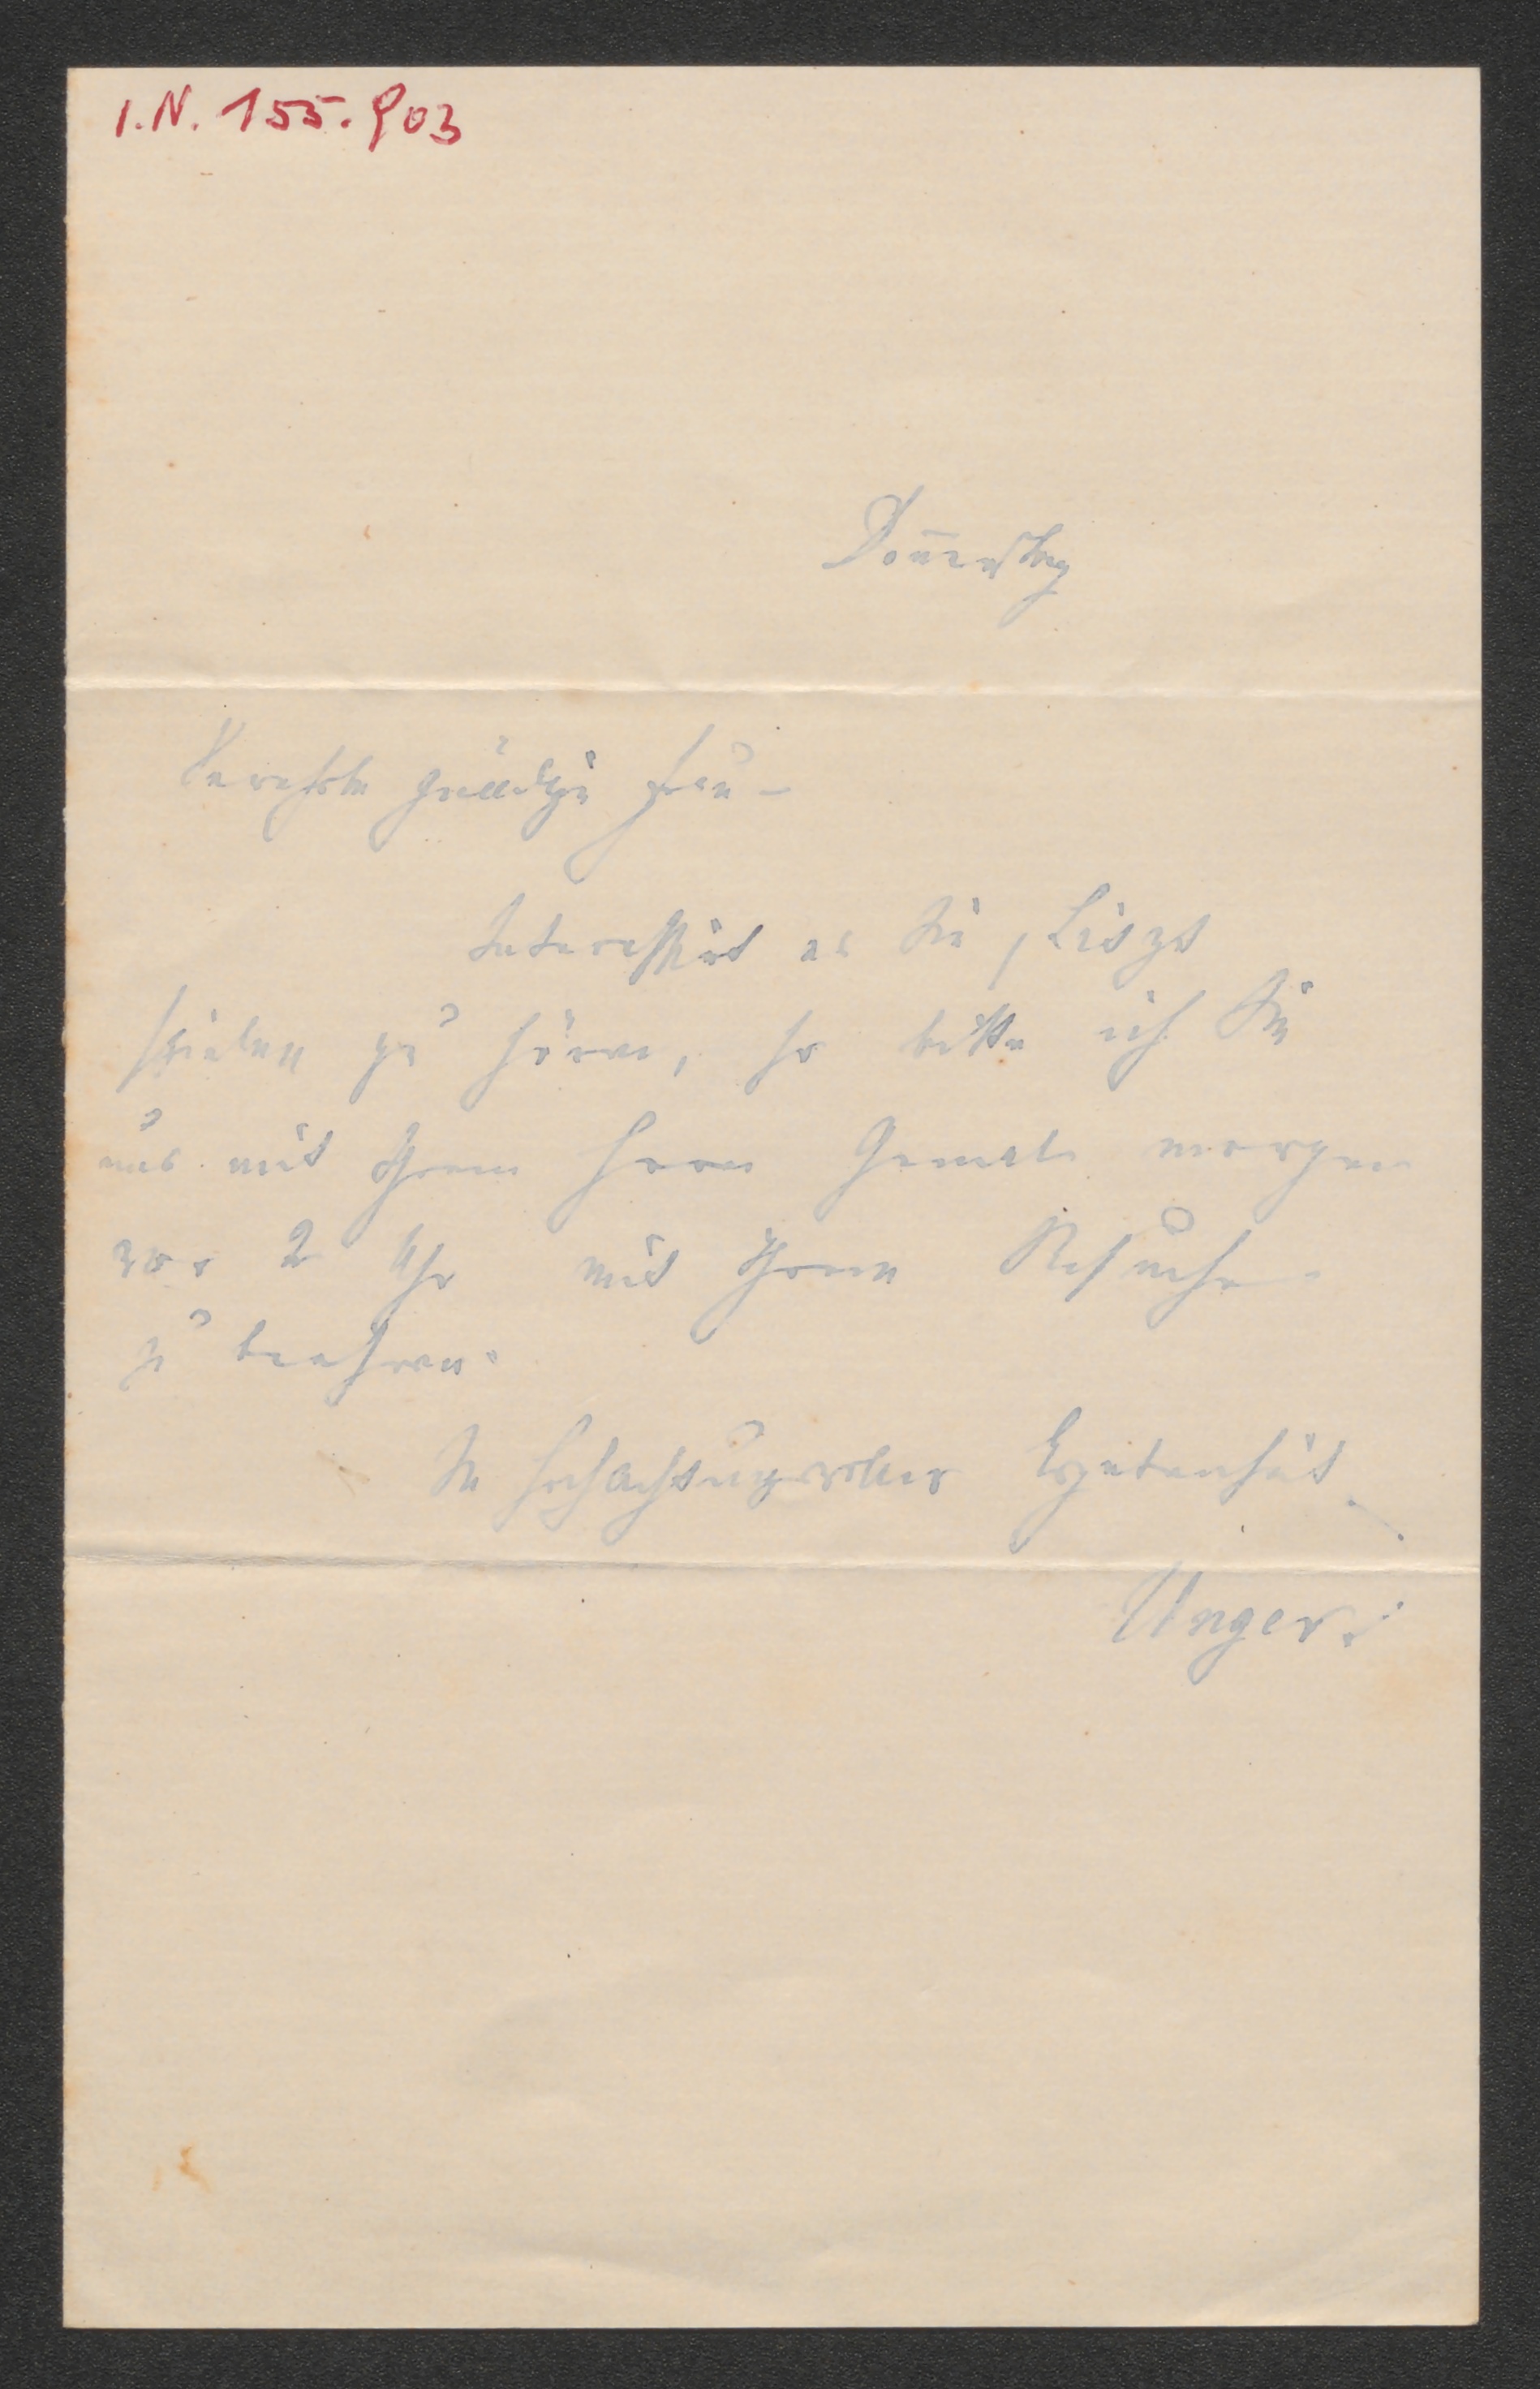 I.N. 155.903
Donnerstag
Verehrte gnädige Frau –
Interessirt es Sie, Liszt
spielen zu hören, so bitte ich Sie
uns mit Ihrem Herrn Gemal morgen
vor 2 Uhr mit Ihrem Besuche
zu beehren.
In hochachtungsvoller Ergebenheit
Unger.